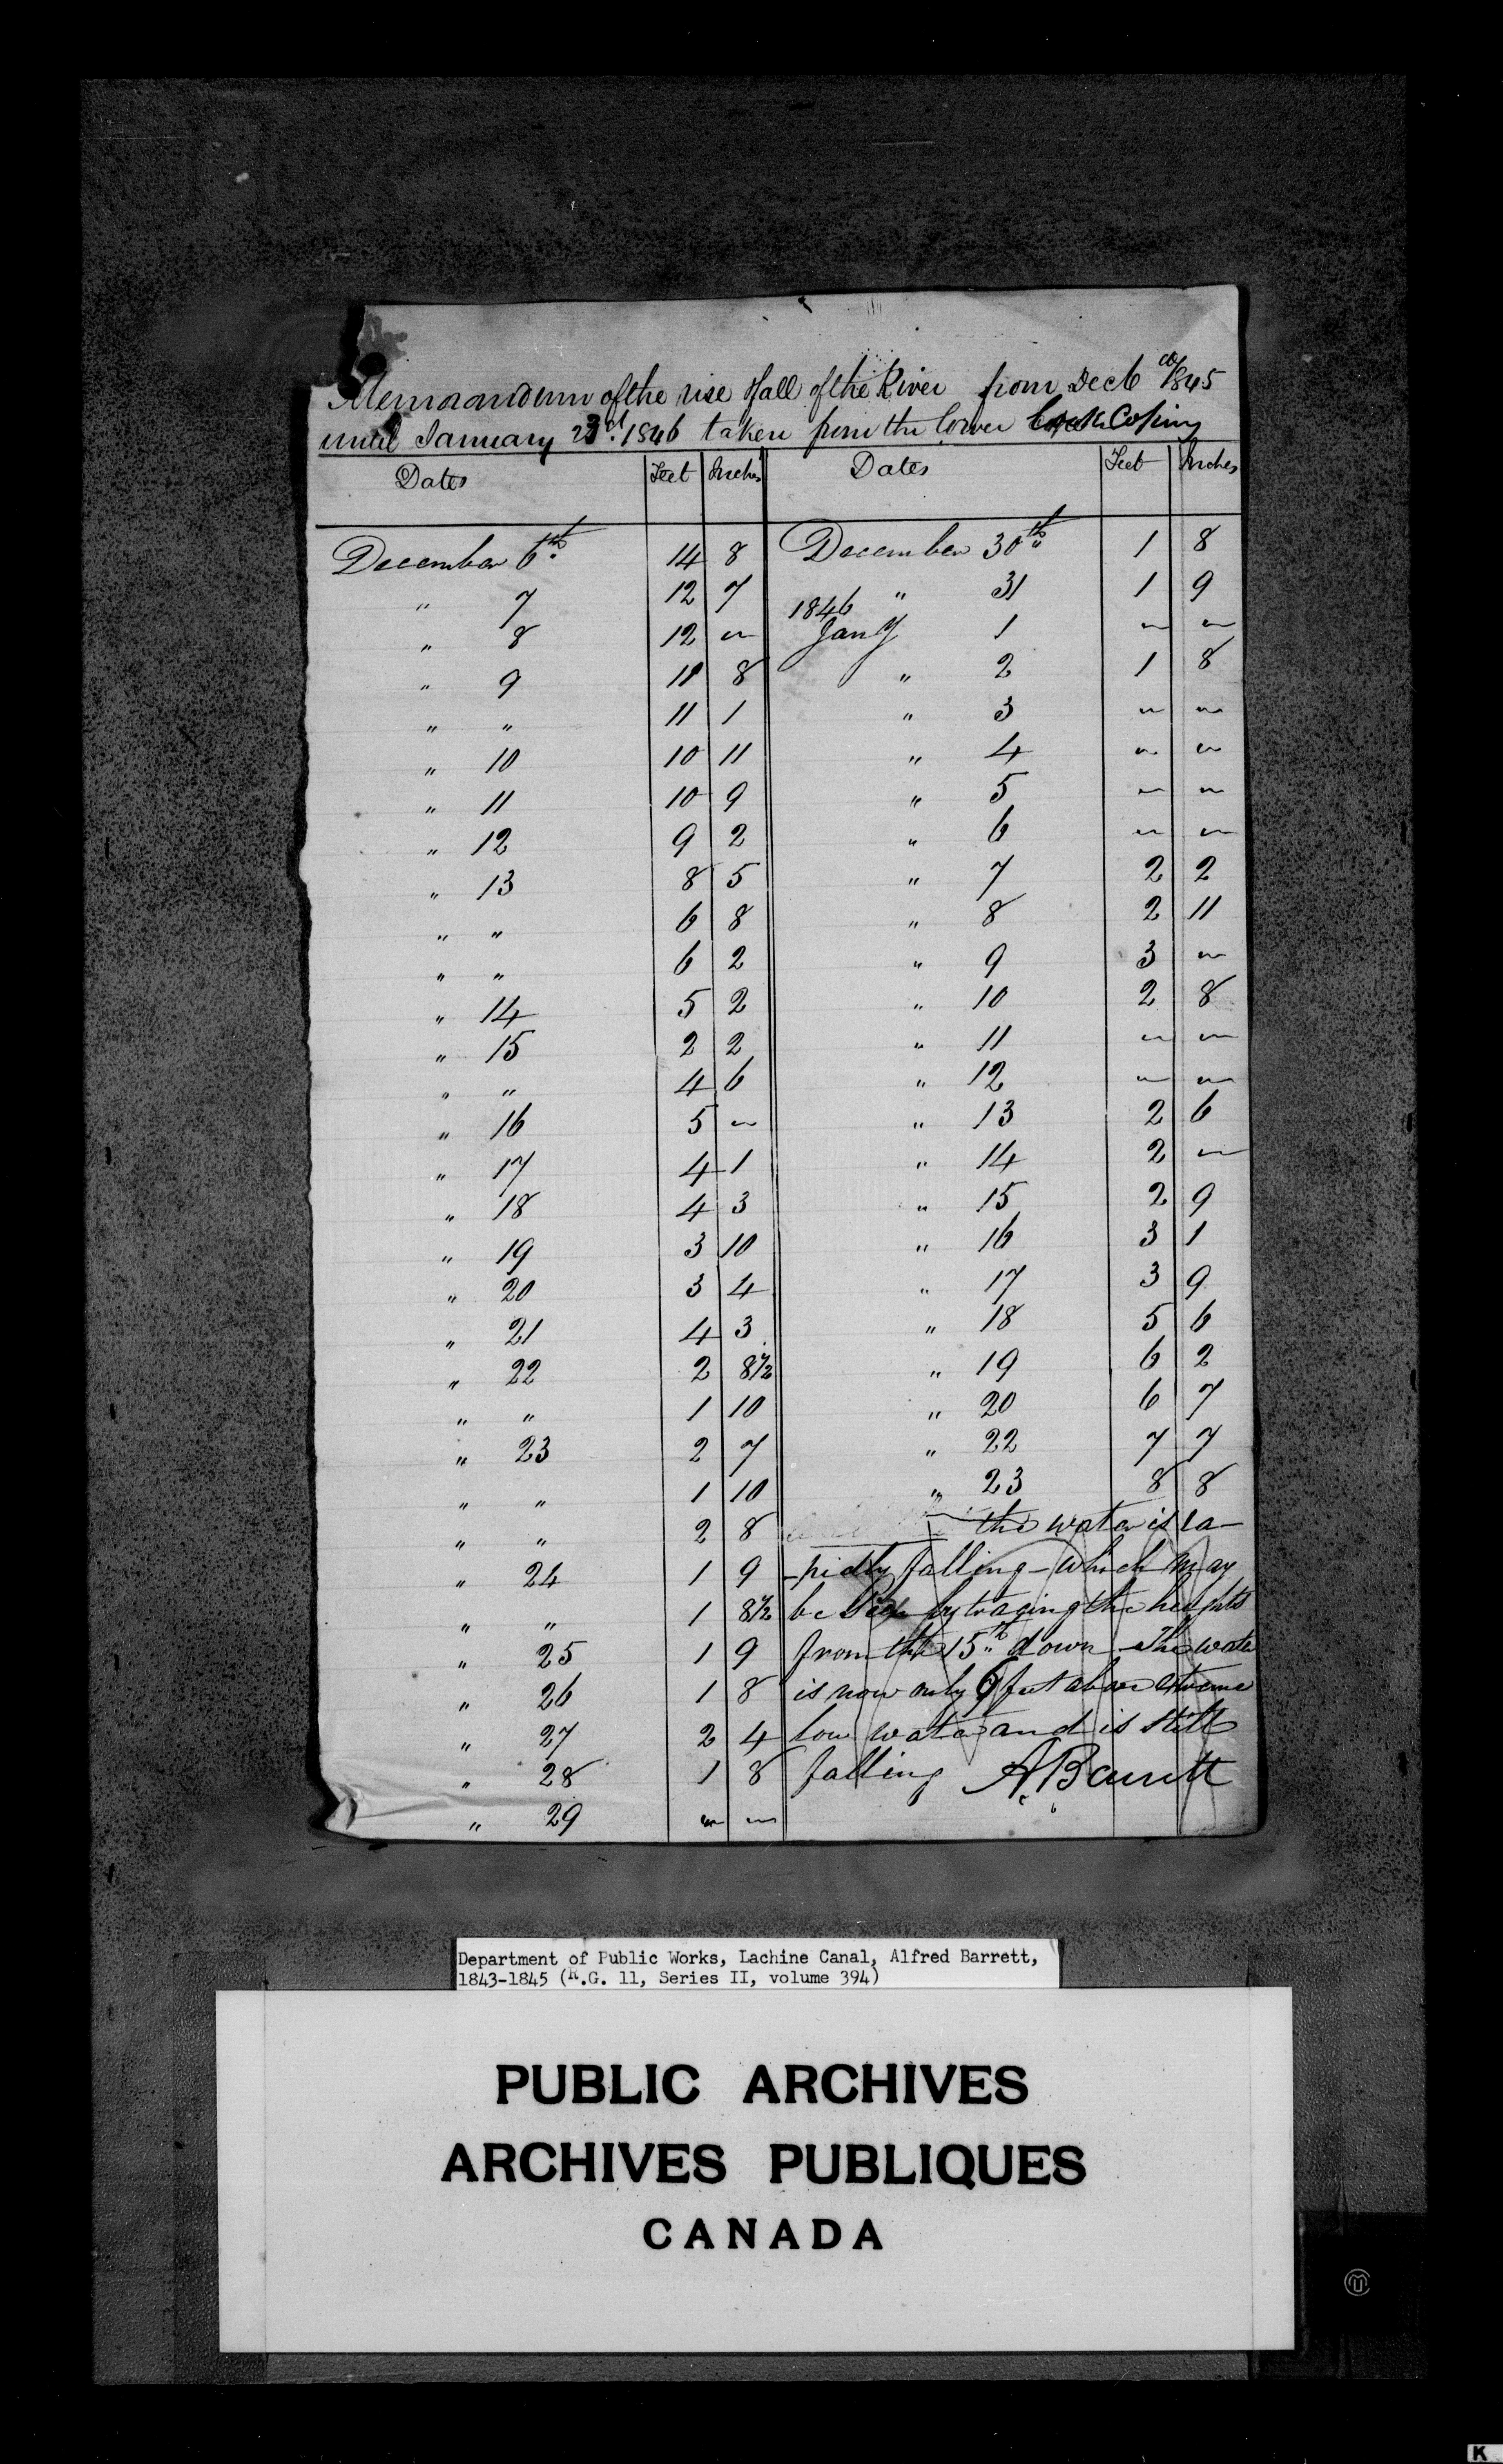 Memorandum of the rise & fall of the River from Dec 6 1845
until January 23d. 1846 taken from the lower Lock Coping
Dates Feet Inches Dates Feet Inches
December 6th. 14 8 December 30th. 1 8
" 7 12 7 " 31 1 9
1846
" 8 12 " Jany 1 " "
" 9 11 8 " 2 1 8
" " 11 1 " 3 " "
" 10 10 11 " 4 " "
" 11 10 9 " 5 " "
" 12 9 2 " 6 " "
" 13 8 5 " 7 2 2
" " 6 8 " 8 2 11
" " 6 2 " 9 3 "
" 14 5 2 " 10 2 8
" 15 2 2 " 11 " "
" " 4 6 " 12 " "
" 16 5 " " 13 2 6
" 17 4 1 " 14 2 "
" 18 4 3 " 15 2 9
" 19 3 10 " 16 3 1
" 20 3 4 " 17 3 9
" 21 4 3 " 18 5 6
" 22 2 8½ " 19 6 2
" " 1 10 " 20 6 7
" 23 2 7 " 22 7 7
" " 1 10 " 23 8 8
" " 2 8 the water is ra-
" 24 1 9 -pidly falling - which may
" " 1 8½ be seen by tracing the heights
" 25 1 9 from the 15th down - The water
" 26 1 8 is now only 6 feet above extreme
" 27 2 4 low water and is still
" 28 1 8 falling A. Barrett
" 29 " "
Department of Public Works, Lachine Canal, Alfred Barrett,
1843-1845 (R.G. 11, Series II, volume 394)
PUBLIC ARCHIVES
ARCHIVES PUBLIQUES
CANADA
K